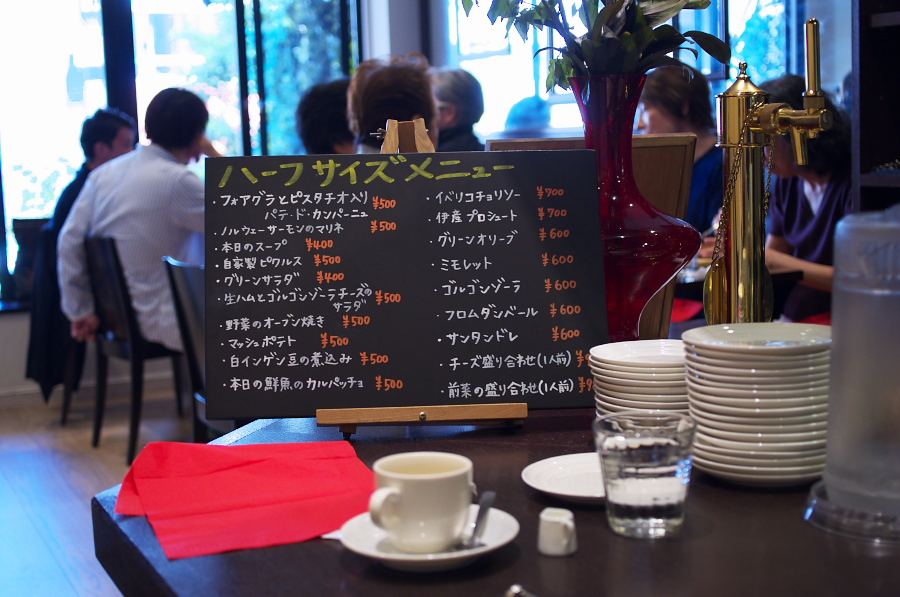 ハーフサイズメニュー
・フォアグラとピスタチオ入り
パテ・ド・カンパーニュ ¥500
・ノルウェーサーモンのマリネ ¥500
・本日のスープ ¥400
・自家製ピクルス ¥500
・グリーンサラダ ¥400
・生ハムとゴルゴンゾーラチーズの
サラダ ¥500
・野菜のオーブン焼き ¥500
・マッシュポテト ¥500
・白インゲン豆の煮込み ¥500
・本日の鮮魚のカルパッチョ ¥500
・イベリコチョリソー ¥700
・伊産プロシュート ¥700
・グリーンオリーブ ¥600
・ミモレット ¥600
・ゴルゴンゾーラ ¥600
・フロムダンベール ¥600
・サンタンドレ ¥600
・チーズ盛り合わせ(1人前)
・前菜の盛り合わせ(1人前)